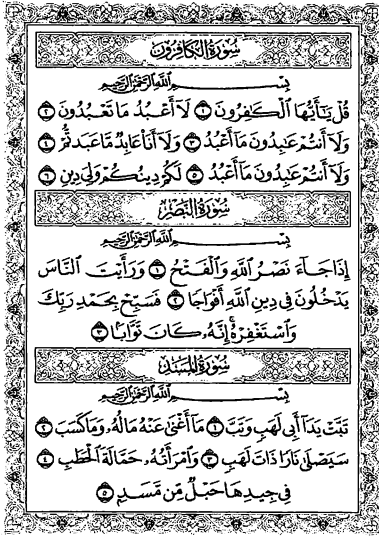 سُورَةُ الكَافِرُونَ
بِسْمِ اللَّهِ الرَّحْمَٰنِ الرَّحِيمِ
قُلْ يَٰٓأَيُّهَا ٱلْكَٰفِرُونَ ١ لَآ أَعْبُدُ مَا تَعْبُدُونَ ٢
وَلَآ أَنتُمْ عَٰبِدُونَ مَآ أَعْبُدُ ٣ وَلَآ أَنَا۠ عَابِدٌ مَّا عَبَدتُّمْ ٤
وَلَآ أَنتُمْ عَٰبِدُونَ مَآ أَعْبُدُ ٥ لَكُمْ دِينُكُمْ وَلِيَ دِينِ ٦
سُورَةُ النَّصْرِ
بِسْمِ اللَّهِ الرَّحْمَٰنِ الرَّحِيمِ
إِذَا جَآءَ نَصْرُ ٱللَّهِ وَٱلْفَتْحُ ١ وَرَأَيْتَ ٱلنَّاسَ
يَدْخُلُونَ فِى دِينِ ٱللَّهِ أَفْوَاجًا ٢ فَسَبِّحْ بِحَمْدِ رَبِّكَ
وَٱسْتَغْفِرْهُ ۚ إِنَّهُۥ كَانَ تَوَّابًۢا ٣
سُورَةُ المَسَد
بِسْمِ اللَّهِ الرَّحْمَٰنِ الرَّحِيمِ
تَبَّتْ يَدَآ أَبِى لَهَبٍ وَتَبَّ ١ مَآ أَغْنَىٰ عَنْهُ مَالُهُۥ وَمَا كَسَبَ ٢
سَيَصْلَىٰ نَارًا ذَاتَ لَهَبٍ ٣ وَٱمْرَأَتُهُۥ حَمَّالَةَ ٱلْحَطَبِ ٤
فِى جِيدِهَا حَبْلٌ مِّن مَّسَدٍۭ ٥